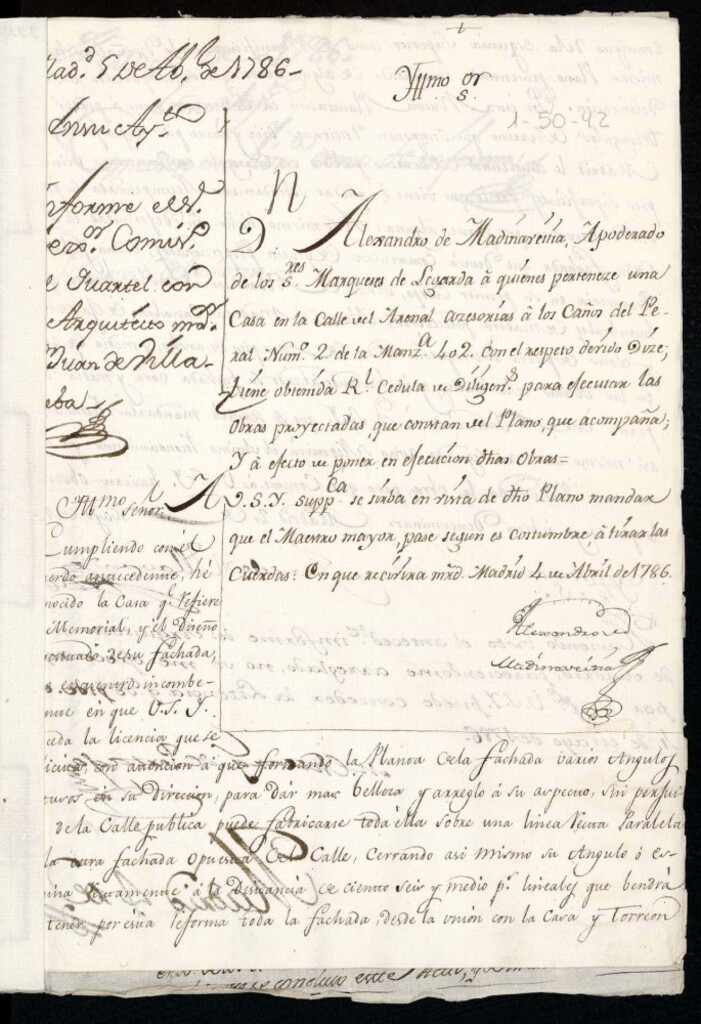 Mad.d 5 de Ab.l de 1786-
Ill.mo S.or
1-50-42
En su Ay.to
Informe el S.r
Comis.o
Quartel con
Arquitecto m.r
Juan de Villa-
D.n Alexandro de Madinaveitia, Apoderado
de los S.res Marqueses de Legarda à quienes perteneze una
Casa en la Calle del Arenal azesorias à los Caños del Pe-
ral Num.o 2 de la Manz.a 402. con el respeto devido Dize,
tiene obtenida R.l Cedula de Diligen.s para efecutar las
obras proyectadas, que constan del Plano, que acompaña;
Y à efecto de poner en efecucion dhas obras=
A V.S.Y. supp.ca se sirba en vista de dho Plano mandar
que el Maestro mayor, pase segun es costumbre à tirar las
Cuerdas: En que recivira mrd. Madrid 4 de Abril de 1786.
Alexandro de
Madinaveitia
Ill.mo Señor
Cumpliendo con el
antecedente, hé
nocido la Casa q.e refiere
Memorial, y el diseño
de su fachada,
encuentro incombe-
en que V.S.Y.
ceda la licencia que se
con atencion à que formando la Planta de la fachada varios Angulos
en su direccion, para dár mas belleza y arreglo à su aspecto, sin perjui-
de la Calle publica puede fabricarse toda ella sobre una linea recta Paralela
la otra fachada opuesta de la Calle, Cerrando asi mismo su Angulo ó es-
à la distancia de ciento seis y medio p.s lineales que bendrá
tener por esta reforma toda la fachada, desde la unión con la Casa y Torreon